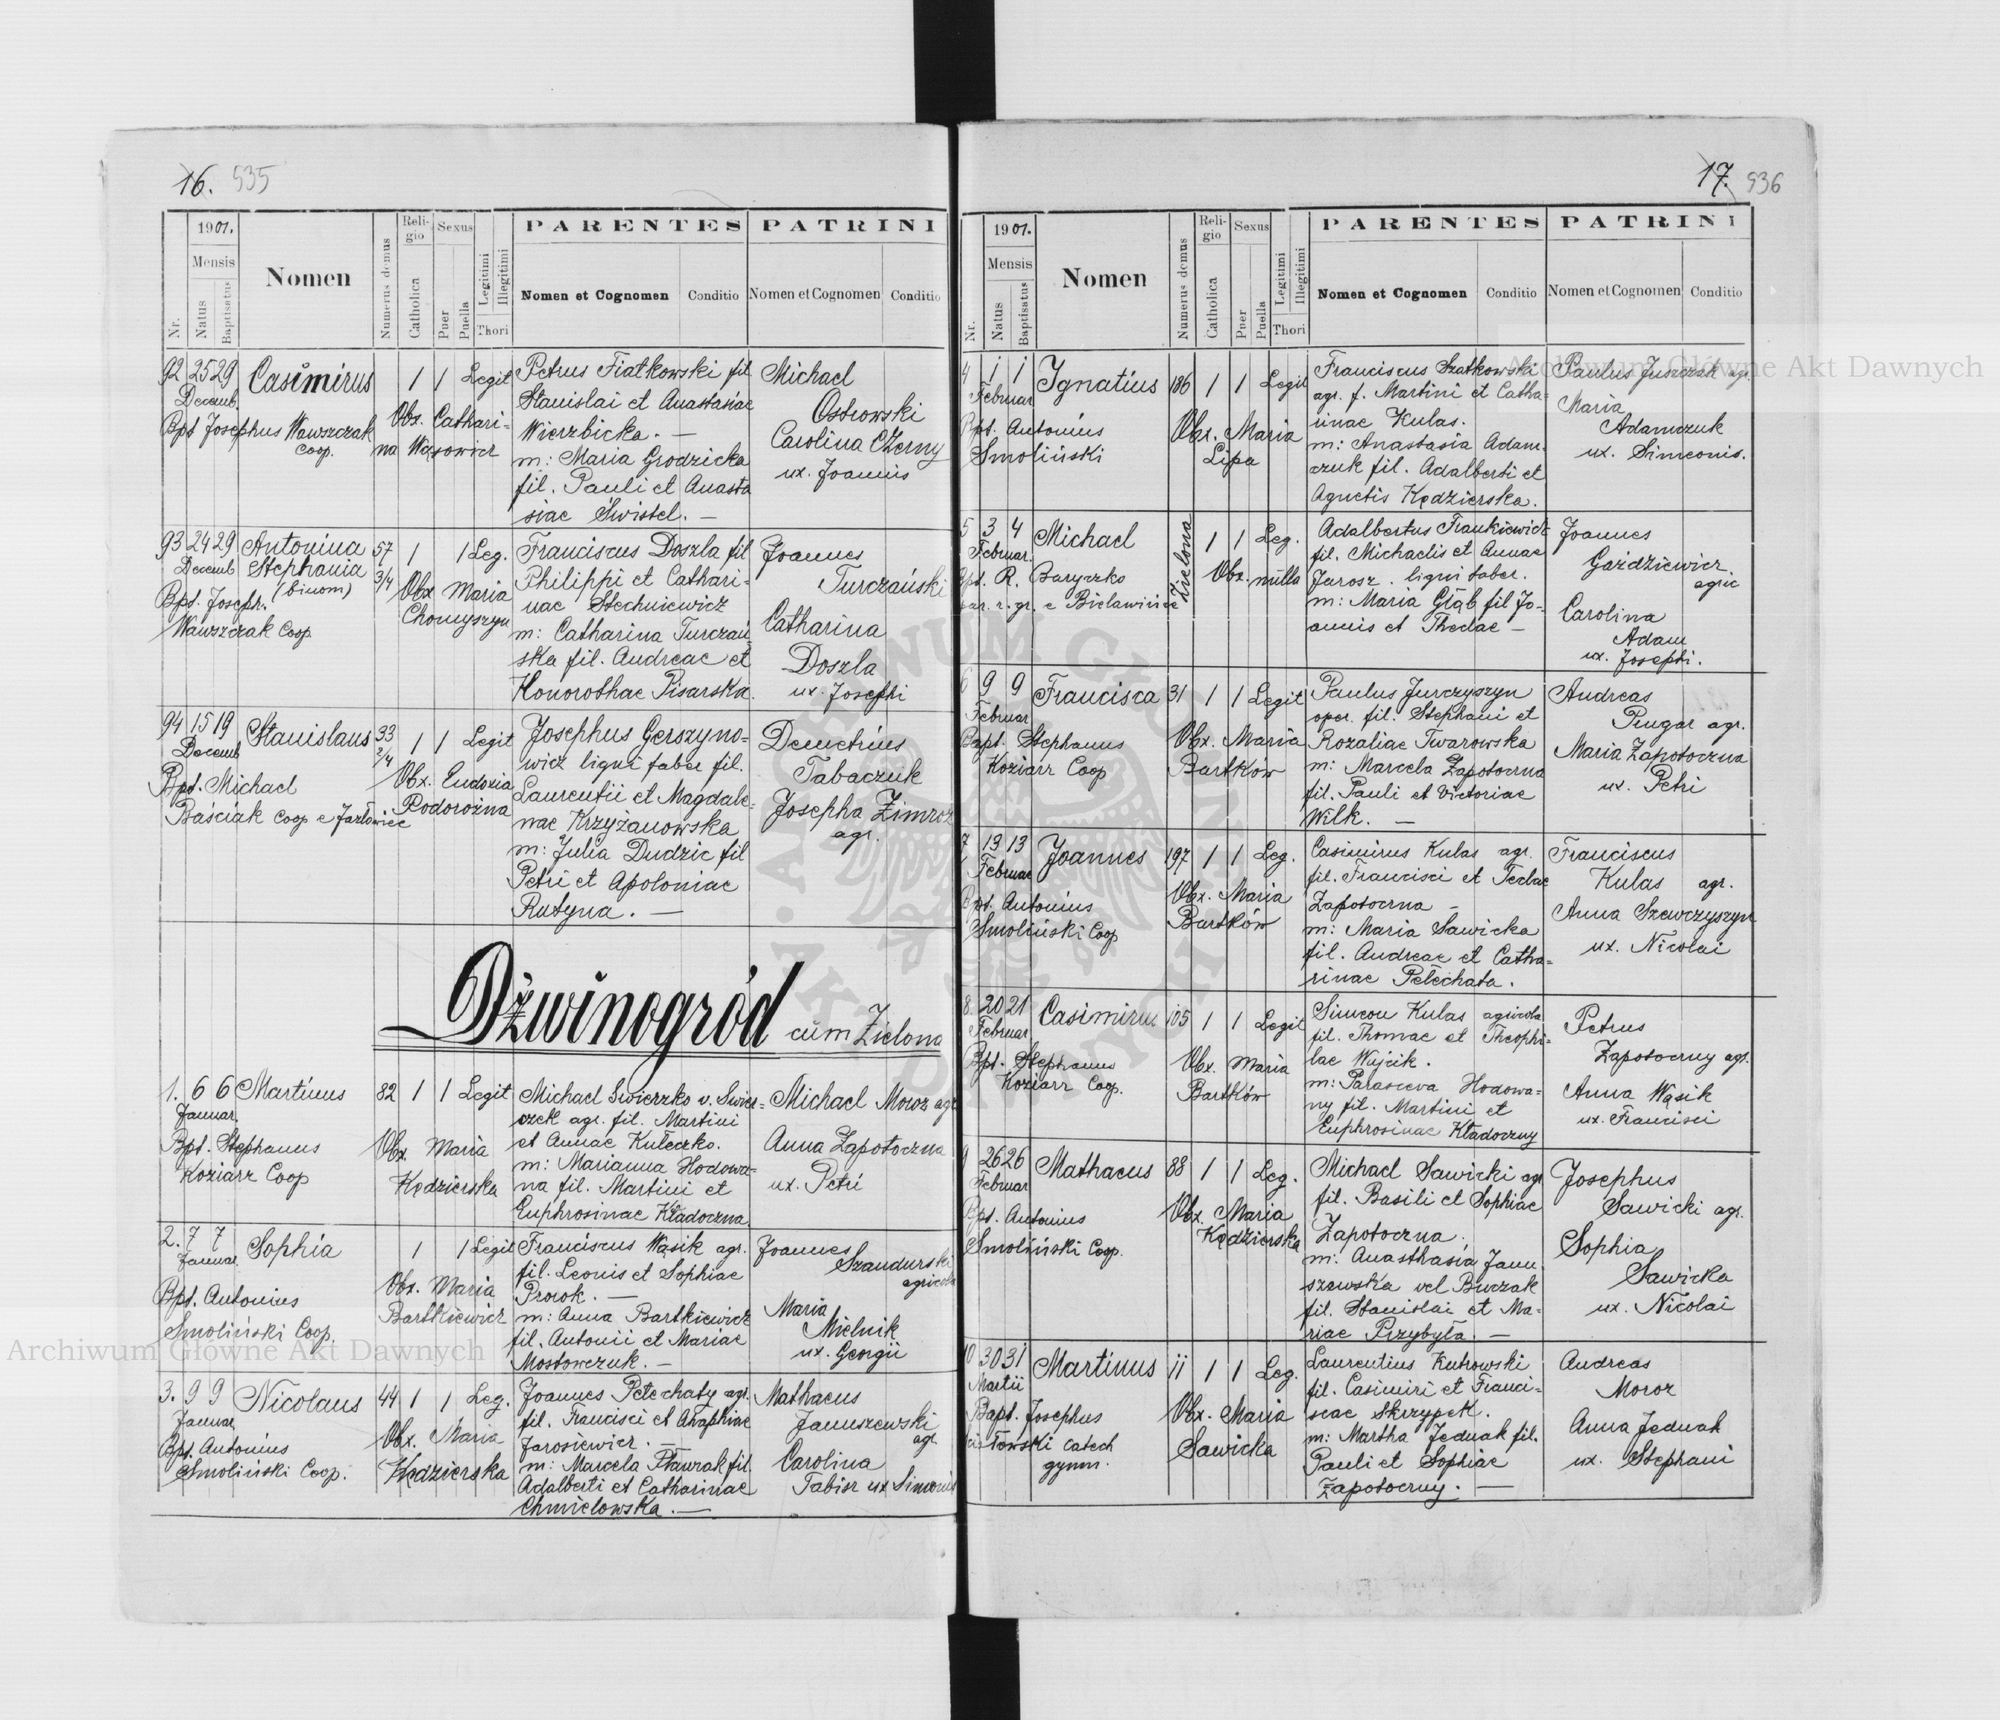 16. 535
1901.
Mensis
Nr.
Natus
Baptisatus
Nomen
Numerus domus
Religio
Catholica
Sexus
Puer
Puella
Legitimi
Illegitimi
Thori
PARENTES
Nomen et Cognomen
Conditio
PATRINI
Nomen et Cognomen
Conditio
92 25 29 Casimirus 1 1 Legit
Decemb.
Bpt Josephus Wawszczak
Coop.
Obx. Cathari-
na Wąsowicz
Petrus Fiatkowski fil
Stanislai et Anastasiae
Wierzbicka. —
m: Maria Grodzicka
fil. Pauli et Anasta
siae Świstel. —
Michael
Ostrowski
Carolina Czerny
ux. Joannis
93 24 29 Antonina 57 1 1 Leg.
Decemb Stephania 3/4
(binom)
Bpt. Joseph.
Wawszczak Coop.
Obx Maria
Chomyszyn
Franciscus Doszla fil
Philippi et Cathari-
nae Stechniewicz
m: Catharina Turczań
ska fil. Andreae et
Honorathae Pisarska.
Joannes
Turczański
Catharina
Doszla
ux. Josephi
94 15 19 Stanislaus 33 1 1 Legit
Decemb 2/4
Bpt. Michael
Baściak Coop e Jazłowiec
Obx. Eudoxia
Podorożna
Josephus Gerszyno=
wicz ligni faber fil.
Laurentii et Magdale-
nae Krzyżanowska
m: Julia Dudzic fil
Petri et Apoloniae
Rutyna. —
Demetrius
Tabaczuk
Josepha Zimroz
agr.
Dźwinogród cum Zielona
1. 6 6 Martinus 82 1 1 Legit
Januar.
Bpt. Stephanus
Koziarz Coop
Obx Maria
Kędzierska
Michael Swierzko v. Swier=
czek agr. fil. Martini
et Annae Kuleczko.
m: Marianna Hodowa=
na fil. Martini et
Euphrosinae Kładoczna
Michael Moroz agr
Anna Zapotoczna
ux. Petri
2. 7 7 Sophia 1 1 Legit
Januar.
Bpt. Antonius
Smoliński Coop.
Obx. Maria
Bartkiewicz
Franciscus Wąsik agr.
fil. Leonis et Sophiae
Prorok. —
m: Anna Bartkiewicz
fil. Antonii et Mariae
Mostowczuk. —
Joannes
Szandurski
agricola
Maria
Mielnik
ux. Georgii
3. 9 9 Nicolaus 44 1 1 Leg.
Januar
Bpt. Antonius
Smoliński Coop.
Obx. Maria
Kędzierska
Joannes Petechaty agr.
fil. Francisci et Anaphiae
Jarosiewicz. —
m: Marcela Pławzak fil.
Adalberti et Catharinae
Chmielowska. —
Mathaeus
Januszewski
agr.
Carolina
Tabisz ux Simonis
17. 536
1901.
Mensis
Nr.
Natus
Baptisatus
Nomen
Numerus domus
Religio
Catholica
Sexus
Puer
Puella
Legitimi
Illegitimi
Thori
PARENTES
Nomen et Cognomen
Conditio
PATRINI
Nomen et Cognomen
Conditio
4 1 1 Ignatius 186 1 1 Legit
Februar
Bpt. Antonius
Smoliński
Obx. Maria
Lipa
Franciscus Szatkowski
agr. f. Martini et Catha-
rinae Kulas.
m: Anastasia Adam-
czuk fil. Adalberti et
Agnetis Kędzierska.
Paulus Juszczak agr.
Maria
Adamczuk
ux. Simeonis.
5 3 4 Michael Zielona 1 1 Leg.
Februar.
Bpt. R. Baryczko
par. r. gr. e Bielawince
Obx. nulla
Adalbertus Frankiewicz
fil. Michaelis et Annae
Jarosz. ligni faber.
m: Maria Głąb fil Jo-
annis et Theclae —
Joannes
Gaździewicz
agric
Carolina
Adam
ux. Josephi.
6 9 9 Francisca 31 1 1 Legit
Februar
Bapt. Stephanus
Koziarz Coop
Obx. Maria
Bartków
Paulus Jurczyszyn
oper. fil. Stephani et
Rozaliae Twarowska
m: Marcela Zapotoczna
fil. Pauli et Victoriae
Wilk. —
Andreas
Pługar agr.
Maria Zapotoczna
ux. Petri
7 13 13 Joannes 197 1 1 Leg.
Februar
Bpt. Antonius
Smoliński Coop
Obx. Maria
Bartków
Casimirus Kulas agr.
fil. Francisci et Teclae
Zapotoczna —
m: Maria Sawicka
fil. Andreae et Catha=
rinae Petechata.
Franciscus
Kulas agr.
Anna Szewczyszyn
ux. Nicolai
8. 20 21 Casimirus 105 1 1 Legit
Februar
Bpt. Stephanus
Koziarz Coop.
Obx. Maria
Bartków
Simeon Kulas agricola
fil. Thomae et Theophi-
lae Wujcik.
m: Parasceva Hodowa-
ny fil. Martini et
Euphrosinae Kładoczny
Petrus
Zapotoczny agr.
Anna Wąsik
ux. Francisci
9 26 26 Mathaeus 88 1 1 Leg.
Februar
Bpt. Antonius
Smoliński Coop.
Obx. Maria
Kędzierska
Michael Sawicki agr
fil. Basili et Sophiae
Zapotoczna.
m: Anasthasia Janu
szewska vel Buczak
fil. Stanislai et Ma=
riae Przybyła. —
Josephus
Sawicki agr.
Sophia
Sawicka
ux. Nicolai
10 30 31 Martinus 11 1 1 Leg.
Martii
Bapt. Josephus
łowski Catech
gymn.
Obx. Maria
Sawicka
Laurentius Kutrowski
fil. Casimiri et Franci=
scae Skrzypek.
m: Martha Jednak fil.
Pauli et Sophiae
Zapotoczny. —
Andreas
Moroz
Anna Jednak
ux. Stephani
Archiwum Główne Akt Dawnych
Archiwum Główne Akt Dawnych